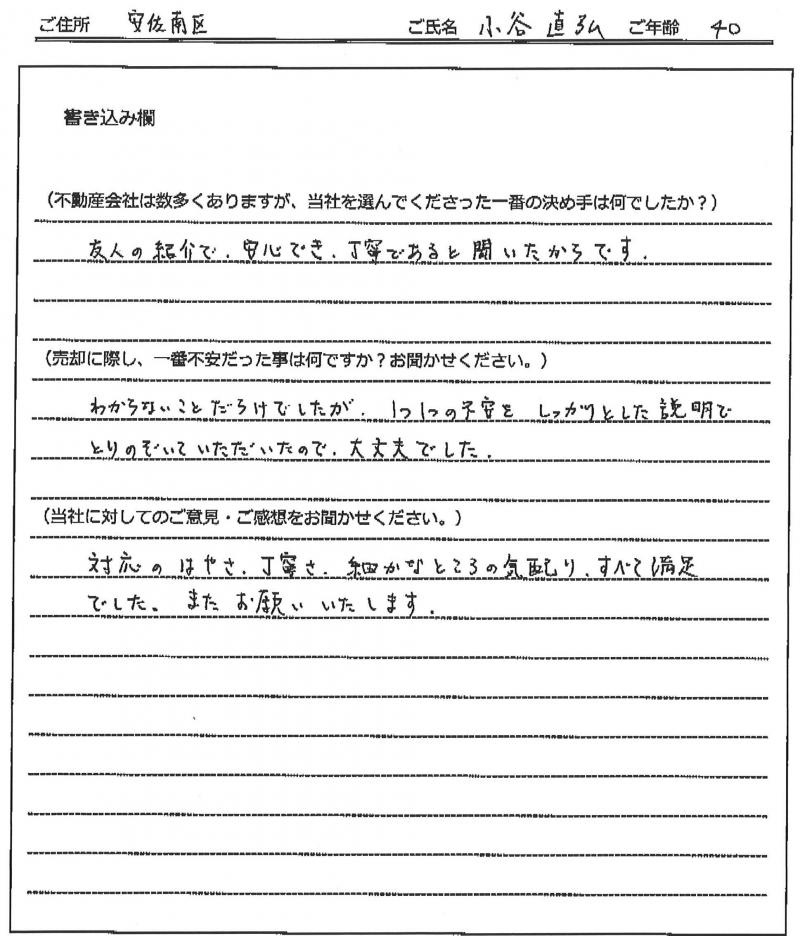 ご住所 安佐南区 ご氏名 小谷 直弘 ご年齢 40
書き込み欄
(不動産会社は数多くありますが、当社を選んでくださった一番の決め手は何でしたか?)
友人の紹介で、安心でき、丁寧であると聞いたからです。
(売却に際し、一番不安だった事は何ですか?お聞かせください。)
わからないことだらけでしたが、1つ1つの不安を しっかりとした説明で
とりのぞいていただいたので、大丈夫でした。
(当社に対してのご意見・ご感想をお聞かせください。)
対応のはやさ、丁寧さ、細かなところの気配り、すべて満足
でした。またお願いいたします。